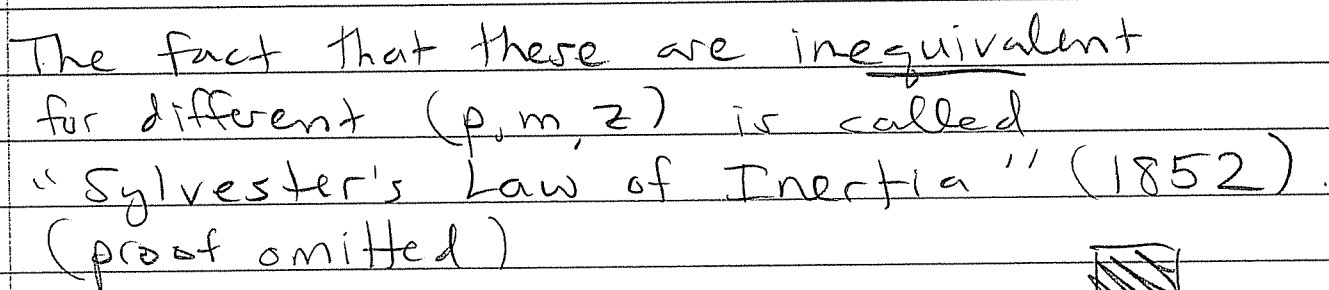 The fact that these are inequivalent
for different (p, m, z) is called
"Sylvester's Law of Inertia" (1852).
(proof omitted)